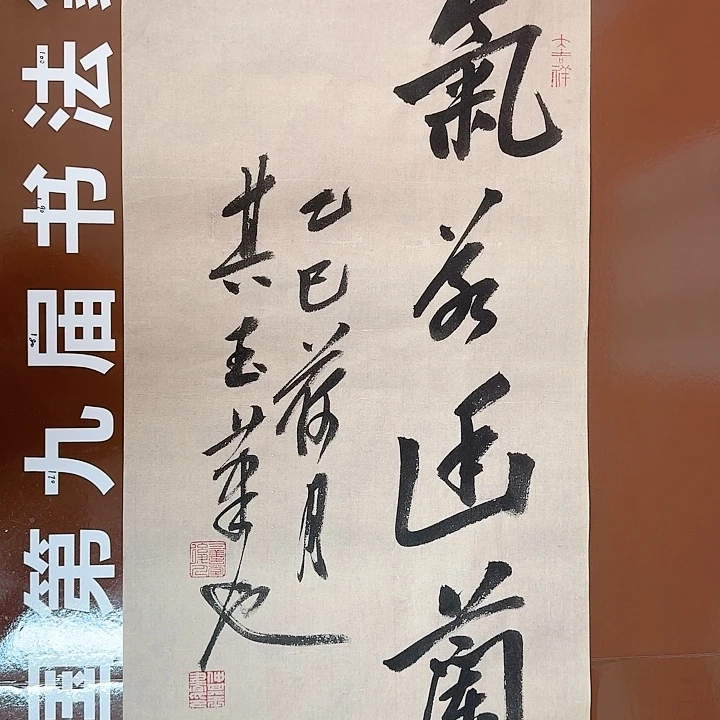 氣若幽蘭
乙巳荷月
其玉筆也
大吉祥
国第九届书法